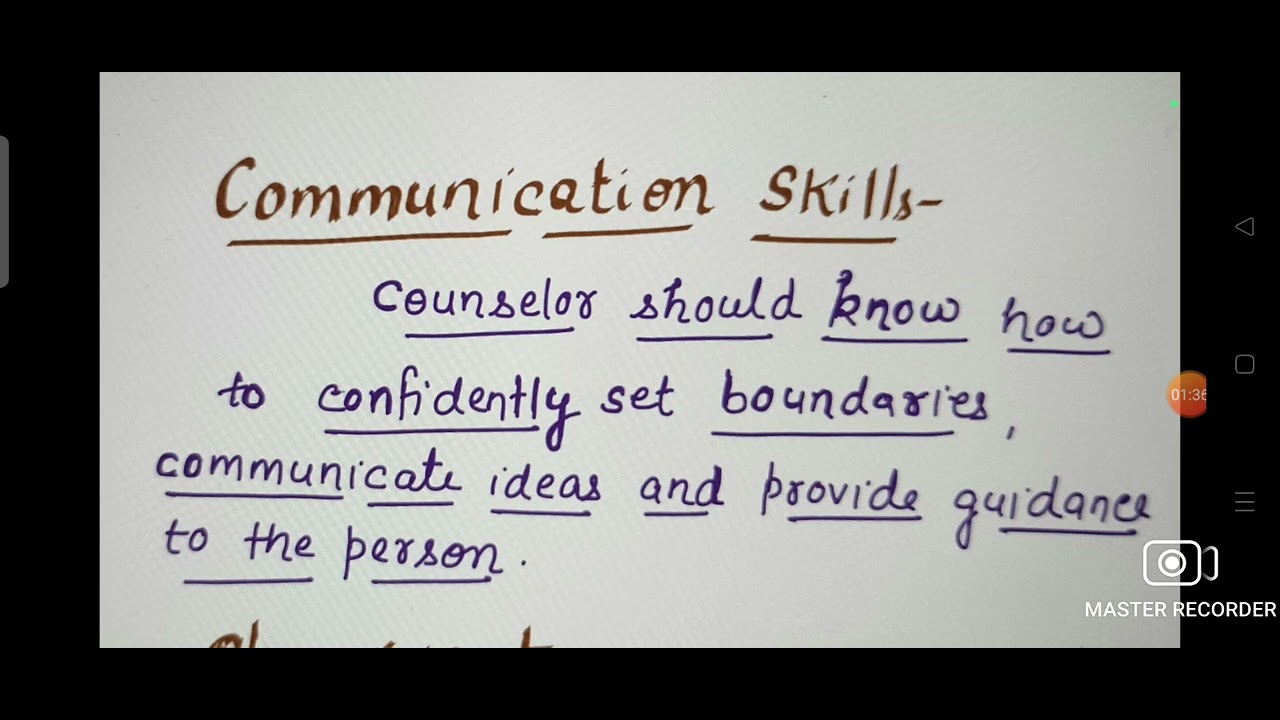 Communication Skills-
Counselor should know how
to confidently set boundaries,
communicate ideas and provide guidance
to the person.
01:36
MASTER RECORDER